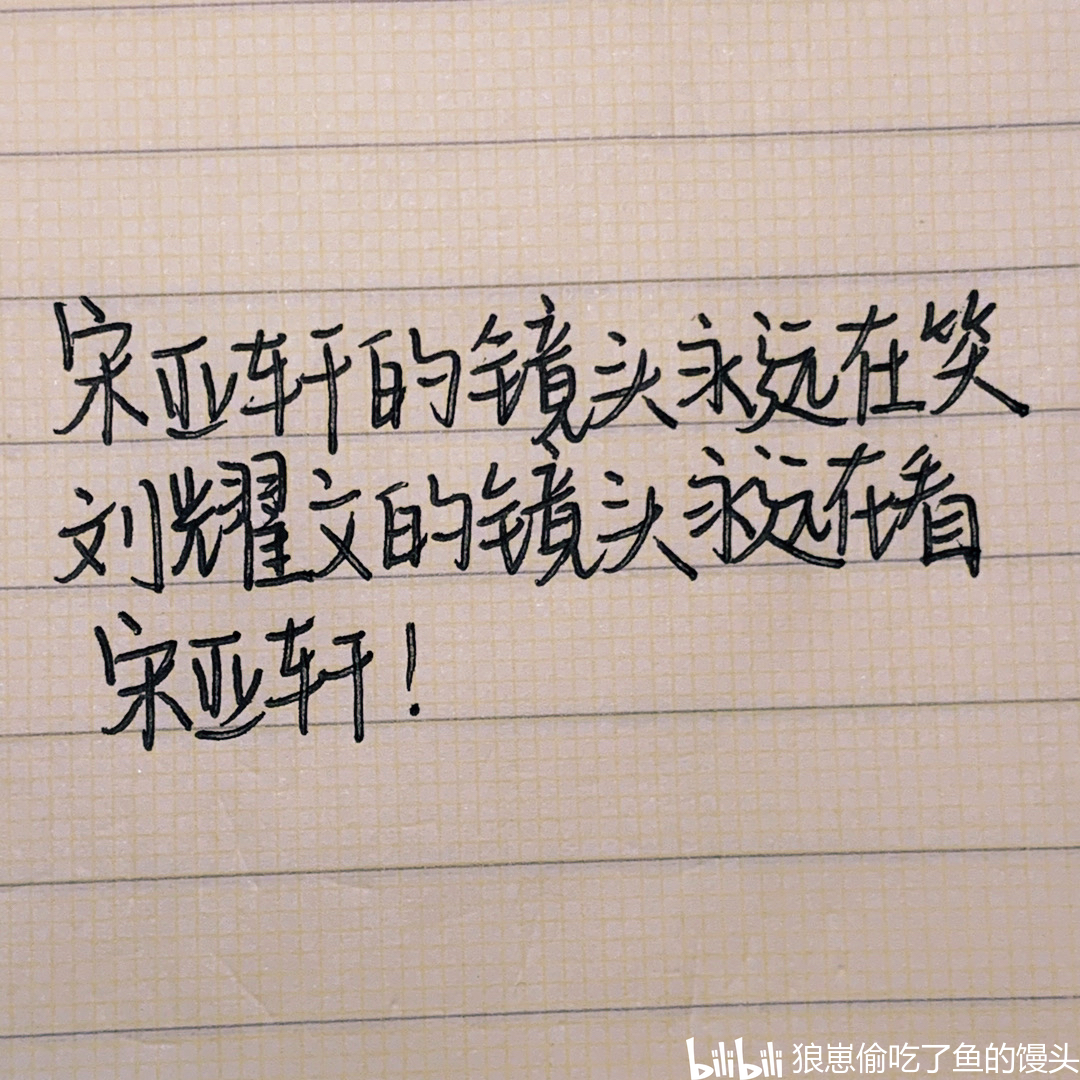 宋亚轩的镜头永远在笑
刘耀文的镜头永远在看
宋亚轩!
bilibili 狼崽偷吃了鱼的馒头